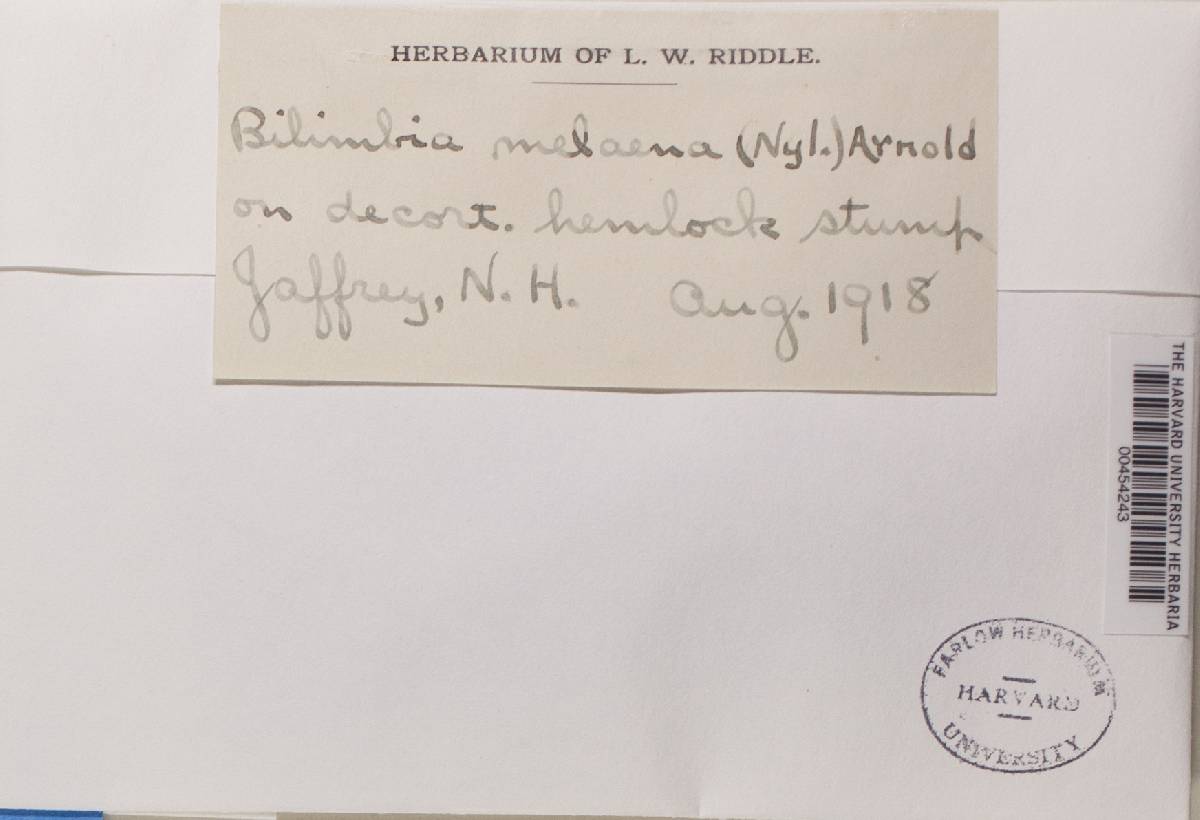 HERBARIUM OF L. W. RIDDLE.
Bilimbia melaena (Nyl.) Arnold
on decort. hemlock stump
Jaffrey, N. H. Aug. 1918
THE HARVARD UNIVERSITY HERBARIA
00454243
FARLOW HERBARIUM
HARVARD
UNIVERSITY